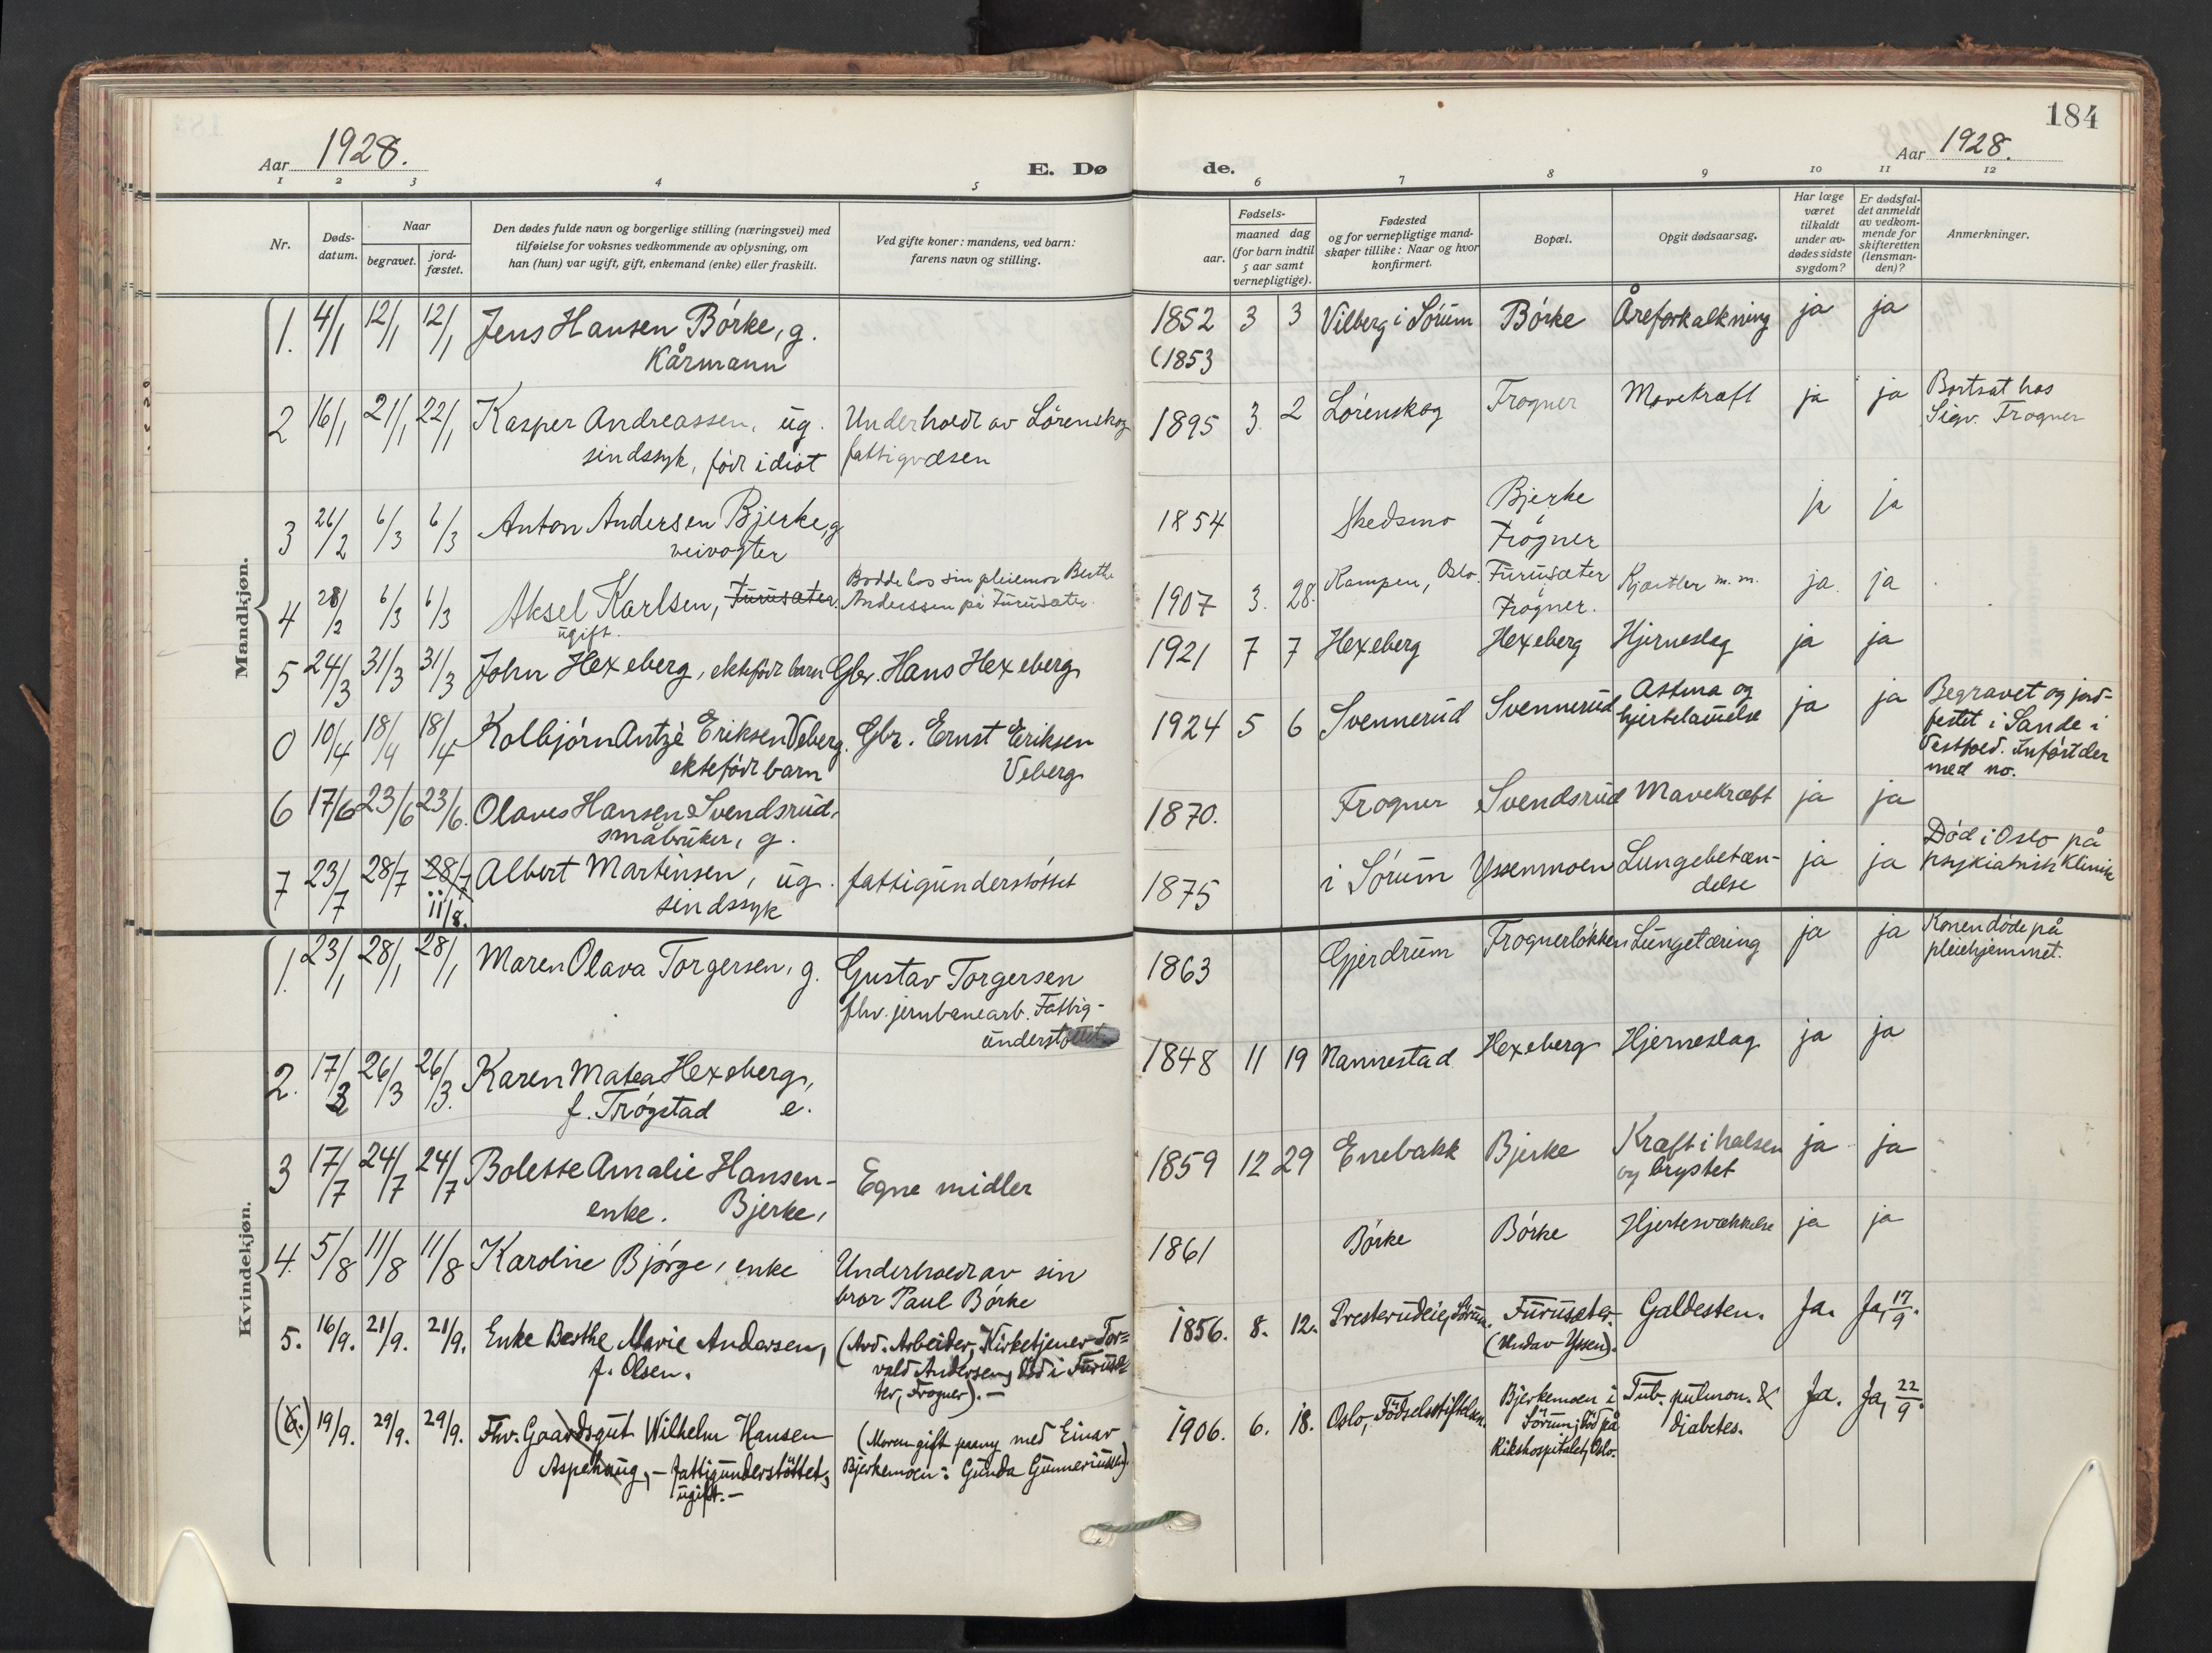 184
Aar 1928.
E. Dø
de.
Aar 1928.
1 2 3 4 5 6 7 8 9 10 11 12
Nr.
Døds-
datum.
Naar
begravet.
jord-
fæstet.
Den dødes fulde navn og borgerlige stilling (næringsvei) med
tilføielse for voksnes vedkommende av oplysning, om
han (hun) var ugift, gift, enkemand (enke) eller fraskilt.
Ved gifte koner: mandens, ved barn:
farens navn og stilling.
Fødsels-
aar.
maaned dag
(for barn indtil
5 aar samt
vernepligtige).
Fødested
og for vernepligtige mand-
skaper tillike: Naar og hvor
konfirmert.
Bopæl.
Opgit dødsaarsag.
Har læge
været
tilkaldt
under av-
dødes sidste
sygdom?
Er dødsfal-
det anmeldt
av vedkom-
mende for
skifteretten
(lensman-
den)?
Anmerkninger.
Mandkjøn.
1. 4/1 12/1 12/1 Jens Hansen Börke, g. 1852 3 3 Vilberg i Sörum Börke Åreforkalkning ja ja
Kårmann (1853
2 16/1 21/1 22/1 Kasper Andreassen, ug. Underholdt av Lörenskog 1895 3. 2 Lörenskog Frogner Mavekræft ja ja Bortsat hos
sindssyk, född idiot fattigvæsen Sigv. Frogner
3 26/2 6/3 6/3 Anton Andersen Bjerke, g 1854 Skedsmo Bjerke ja ja
veivogter Frogner
4 28/2 6/3 6/3 Aksel Karlsen, Furusæter. Bodde hos sin pleiemor Berthe 1907 3. 28. Kampen, Oslo. Furusæter Kjærtler m. m. ja. ja
ugift. Anderssen på Furusæter. Frogner.
5 24/3 31/3 31/3 John Hexeberg, ektefödt barn Gbr. Hans Hexeberg 1921 7 7 Hexeberg Hexeberg Hjerneslag ja ja
0 10/4 18/4 18/4 Kolbjörn Antze Eriksen Veberg. Gbr. Ernst Eriksen 1924 5 6 Svennerud Svennerud Astma og ja ja Begravet og jord-
ektefödt barn Veberg hjertelammelse festet i Sande i
Vestfold. Inført der
med no.
6 17/6 23/6 23/6. Olaves Hansen Svendsrud, 1870. Frogner Svendsrud Mavekræft ja ja
småbruker, g.
7 23/7 28/7 28/7 Albert Martinsen, ug. fattigunderstöttet 1875 i Sörum Yssenmoen Lungebetæn- ja ja Död i Oslo på
11/8. sindssyk delse psykiatrisk Klinik
Kvindekjøn.
1. 23/1 28/1 28/1 Maren Olava Torgersen, g. Gustav Torgersen 1863 Gjerdrum Frognerlökken Lungetæring ja ja Konen döde på
fhv. jernbanearb. Fattig- pleiehjemmet.
understöttet
2. 17/3 26/3 26/3. Karen Matea Hexeberg, 1848 11 19 Nannestad Hexeberg Hjerneslag ja ja
f. Trögstad e.
3 17/7 24/7 24/7 Bolette Amalie Hansen- Egne midler 1859 12 29 Enebakk Bjerke Kræft i halsen ja ja
enke. Bjerke, og brystet
4. 5/8 11/8 11/8 Karoline Bjørge, enke Underholdt av sin 1861 Börke Börke Hjertesvækkelse ja ja
bror Paul Börke
5. 16/9. 21/9. 21/9. Enke Berthe Marie Andersen, (Avd. Arbeider, Kirketjener Tor= 1856. 8. 12. Presterudeie, Sörum. Furusæter. Galdesten. Ja. Ja, 17/9.
f. Olsen. vald Andersen, död i Furusæ= (Undav Yssen).
ter, Frogner). —
(6.) 19/9. 29/9. 29/9. Fhv. Gaardsgut Wilhelm Hansen (Moren gift paany med Einar 1906. 6. 18. Oslo, Födselsstiftelsen. Bjerkemoen i Tub. pulmon. & Ja. Ja, 22/9.
Aspehaug, — fattigunderstöttet, Bjerkemoen: Gunda Gunneriussen). Sörum; död på diabetes.
ugift. — Rikshospitalet, Oslo.